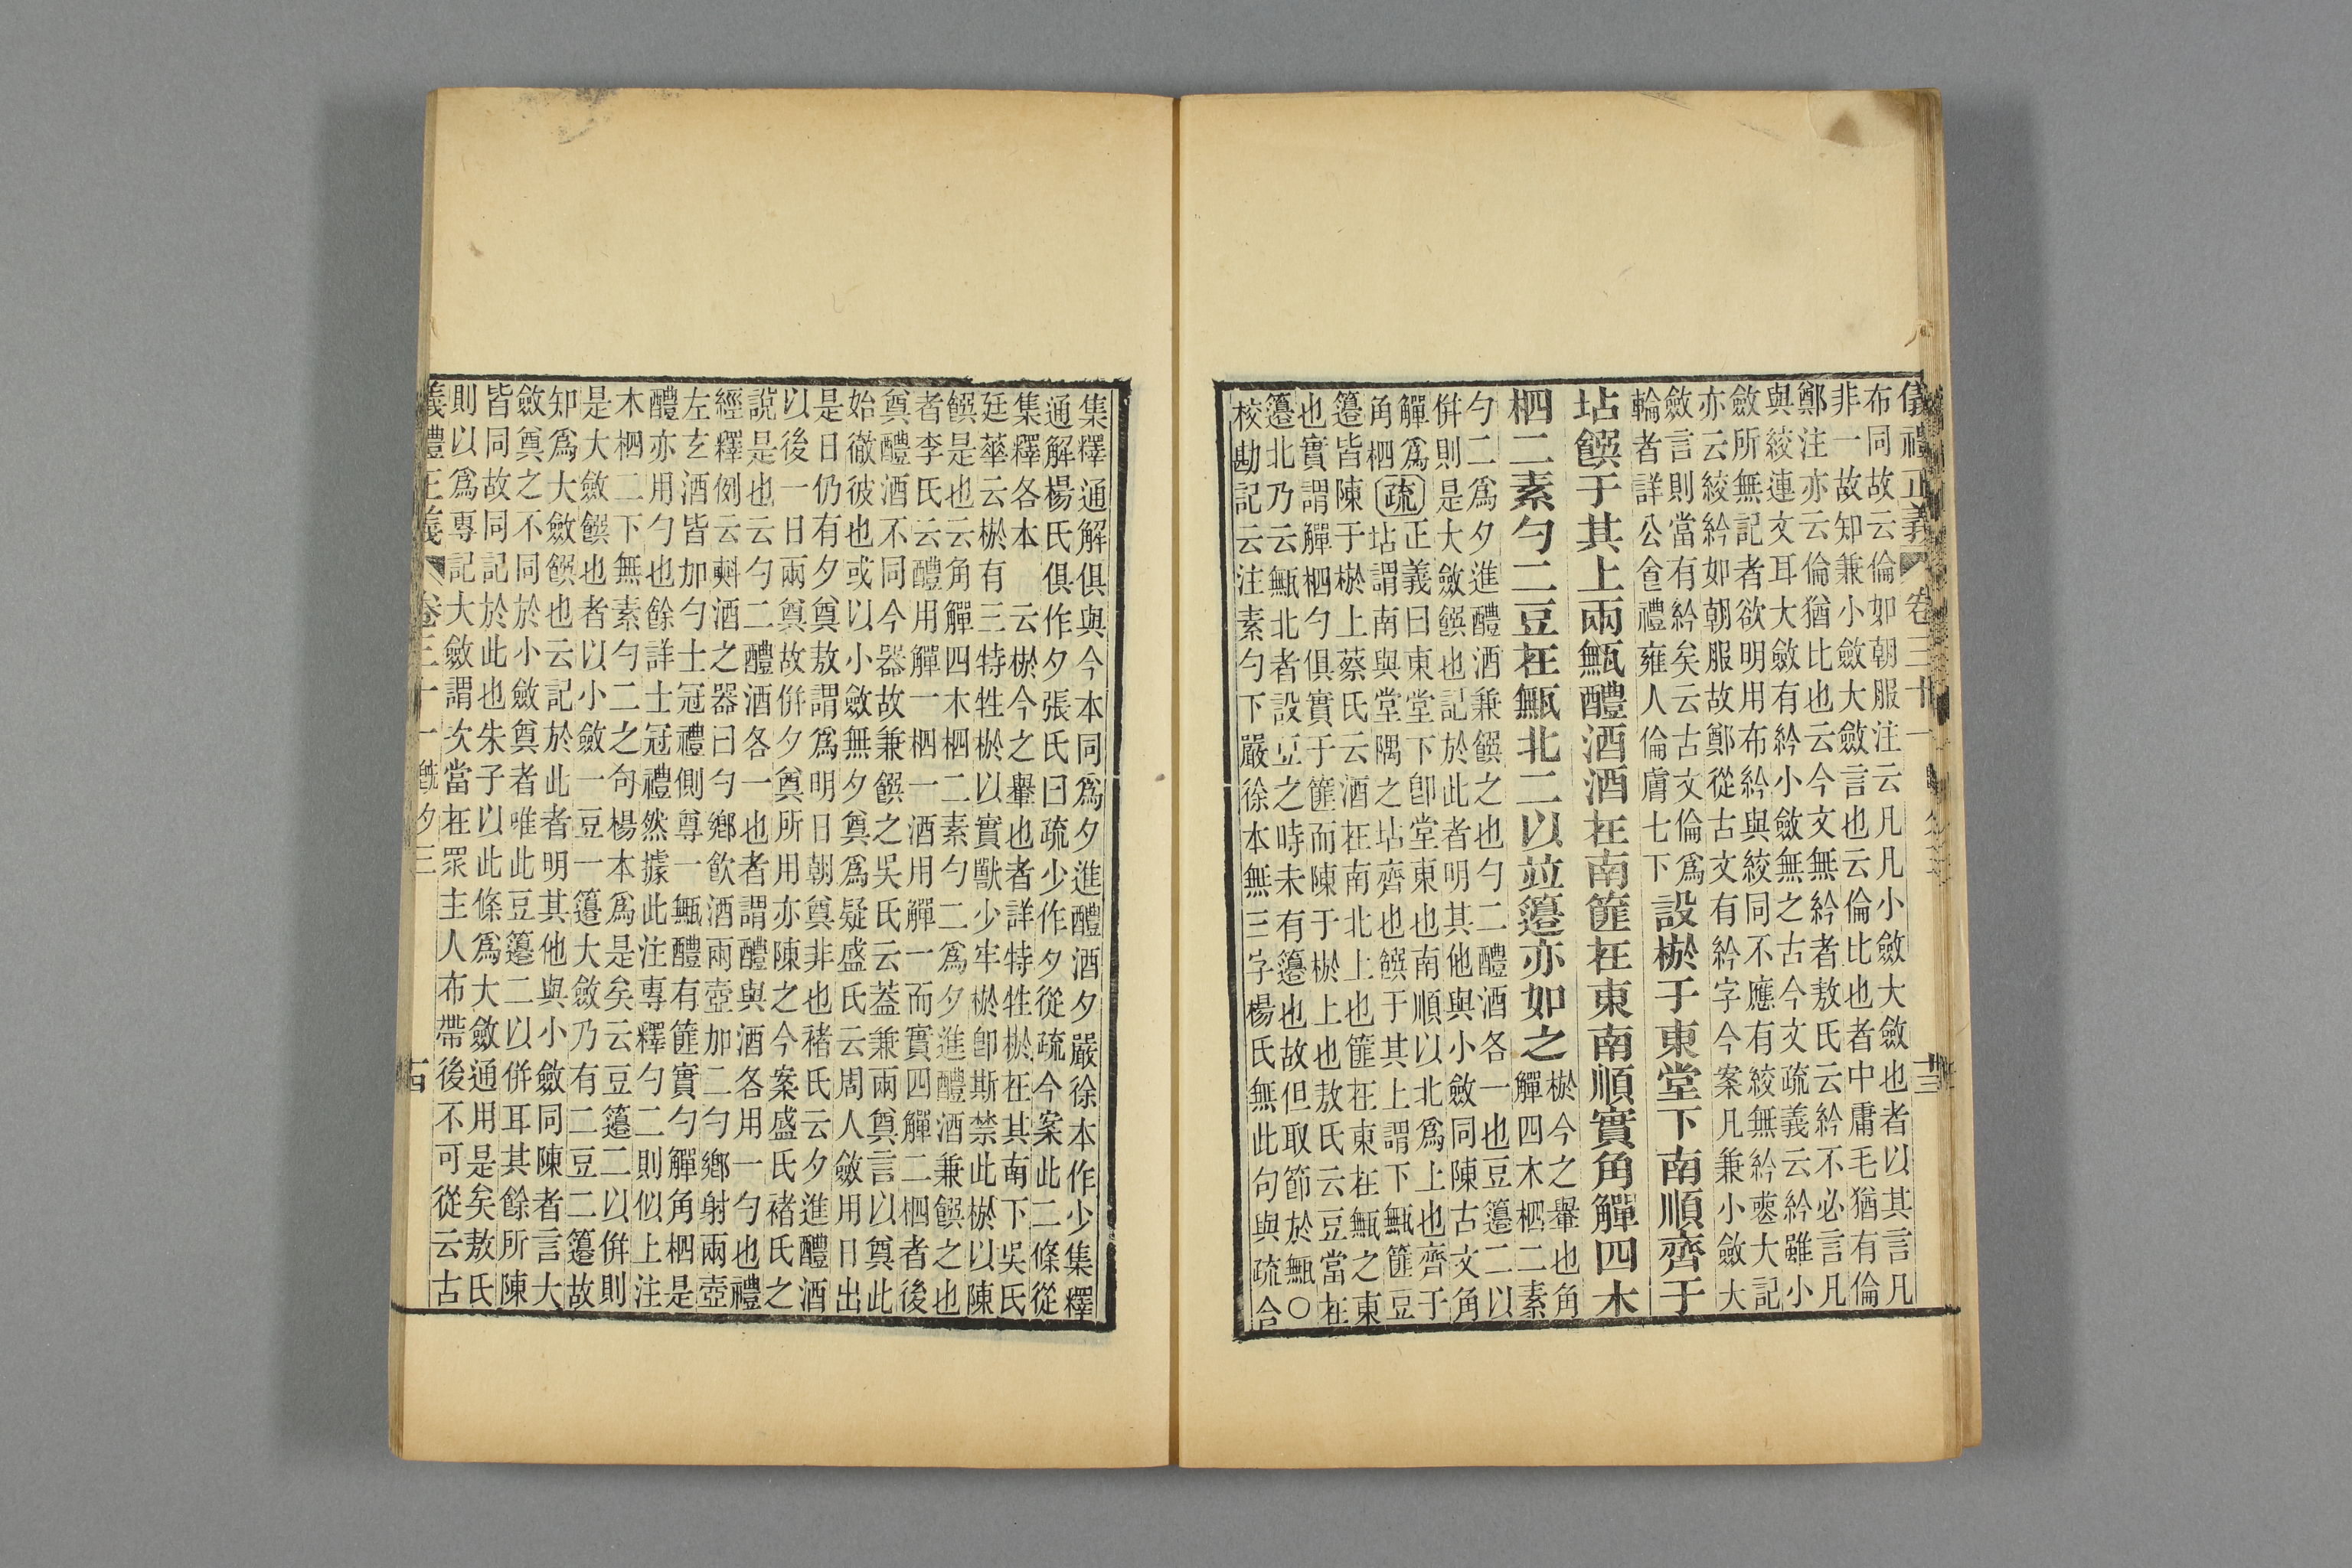 儀禮正義 卷三十一 十三
布同故云倫如朝服注云凡凡小斂大斂也者以其言凡
非一故知兼小斂大斂言也云倫比也者中庸毛猶有倫
鄭注亦云倫猶比也云今文無紟者敖氏云紟不必言凡
與絞連文耳大斂有紟小斂無之古今文疏義云紟雖小
斂所無記者欲明用布紟與絞同不應有絞無紟大記
亦云絞紟如朝服故鄭從古文有紟字今案凡兼小斂大
斂言則當有紟矣云古文倫爲
輪者詳公食禮雍人倫膚七下
設棜于東堂下南順齊于
坫饌于其上兩甒醴酒酒在南篚在東南順實角觶四木
柶二素勺二豆在甒北二以竝籩亦如之
棜今之轝也角
觶四木柶二素
勺二爲夕進醴酒兼饌之也勺二醴酒各一也豆籩二以
併則是大斂饌也記於此者明其他與小斂同陳古文角
觶爲
角柶
疏
正義曰東堂下卽堂東也南順以北爲上也齊于
坫謂南與堂隅之坫齊也饌于其上謂下甒篚豆
籩皆陳于棜上蔡氏云酒在南北上也篚在東在甒之東
也實謂觶柶勺俱實于篚而陳于棜上也敖氏云豆當在
籩北乃云甒北者設豆之時未有籩也故但取節於甒○
校勘記云注素勺下嚴徐本無三字楊氏無此句與疏合
集釋通解俱與今本同爲夕進醴酒夕嚴徐本作少集釋
通解楊氏俱作夕張氏曰疏少作夕從疏今案此二條從
集釋各本 云棜今之轝也者詳特牲棜在其南下吳氏
廷華云棜有三特牲棜以實獸少牢棜卽斯禁此棜以陳
饌是也云角觶四木柶二素勺二爲夕進醴酒兼饌之也
者李氏云醴用觶一柶一酒用觶一而實四觶二柶者後
奠醴酒不同今器故兼饌之吳氏云蓋兼兩奠言以奠此
始徹彼也或以小斂無夕奠爲疑盛氏云周人斂用日出
是日仍有夕奠敖謂爲明日朝奠非也褚氏云夕進醴酒
以後一日兩奠故併夕奠所用亦陳之今案盛氏褚氏之
說是也云勺二醴酒各一也者謂醴與酒各用一勺也禮
經釋例云㪺酒之器曰勺鄉飲酒兩壺加二勺鄉射兩壺
左玄酒皆加勺士冠禮側尊一甒醴有篚實勺觶角柶是
醴亦用勺也餘詳士冠禮然據此注專釋勺二則似上注
木柶二下無素勺二之句楊本爲是矣云豆籩二以併則
是大斂饌也者以小斂一豆一籩大斂乃有二豆二籩故
知爲大斂饌也云記於此者明其他與小斂同陳者言大
斂奠之不同於小斂奠者唯此豆籩二以併耳其餘所陳
皆同故同記於此也朱子以此條爲大斂通用是矣敖氏
則以爲專記大斂謂次當在眾主人布帶後不可從云古
儀禮正義 卷三十一 旣夕三 十四